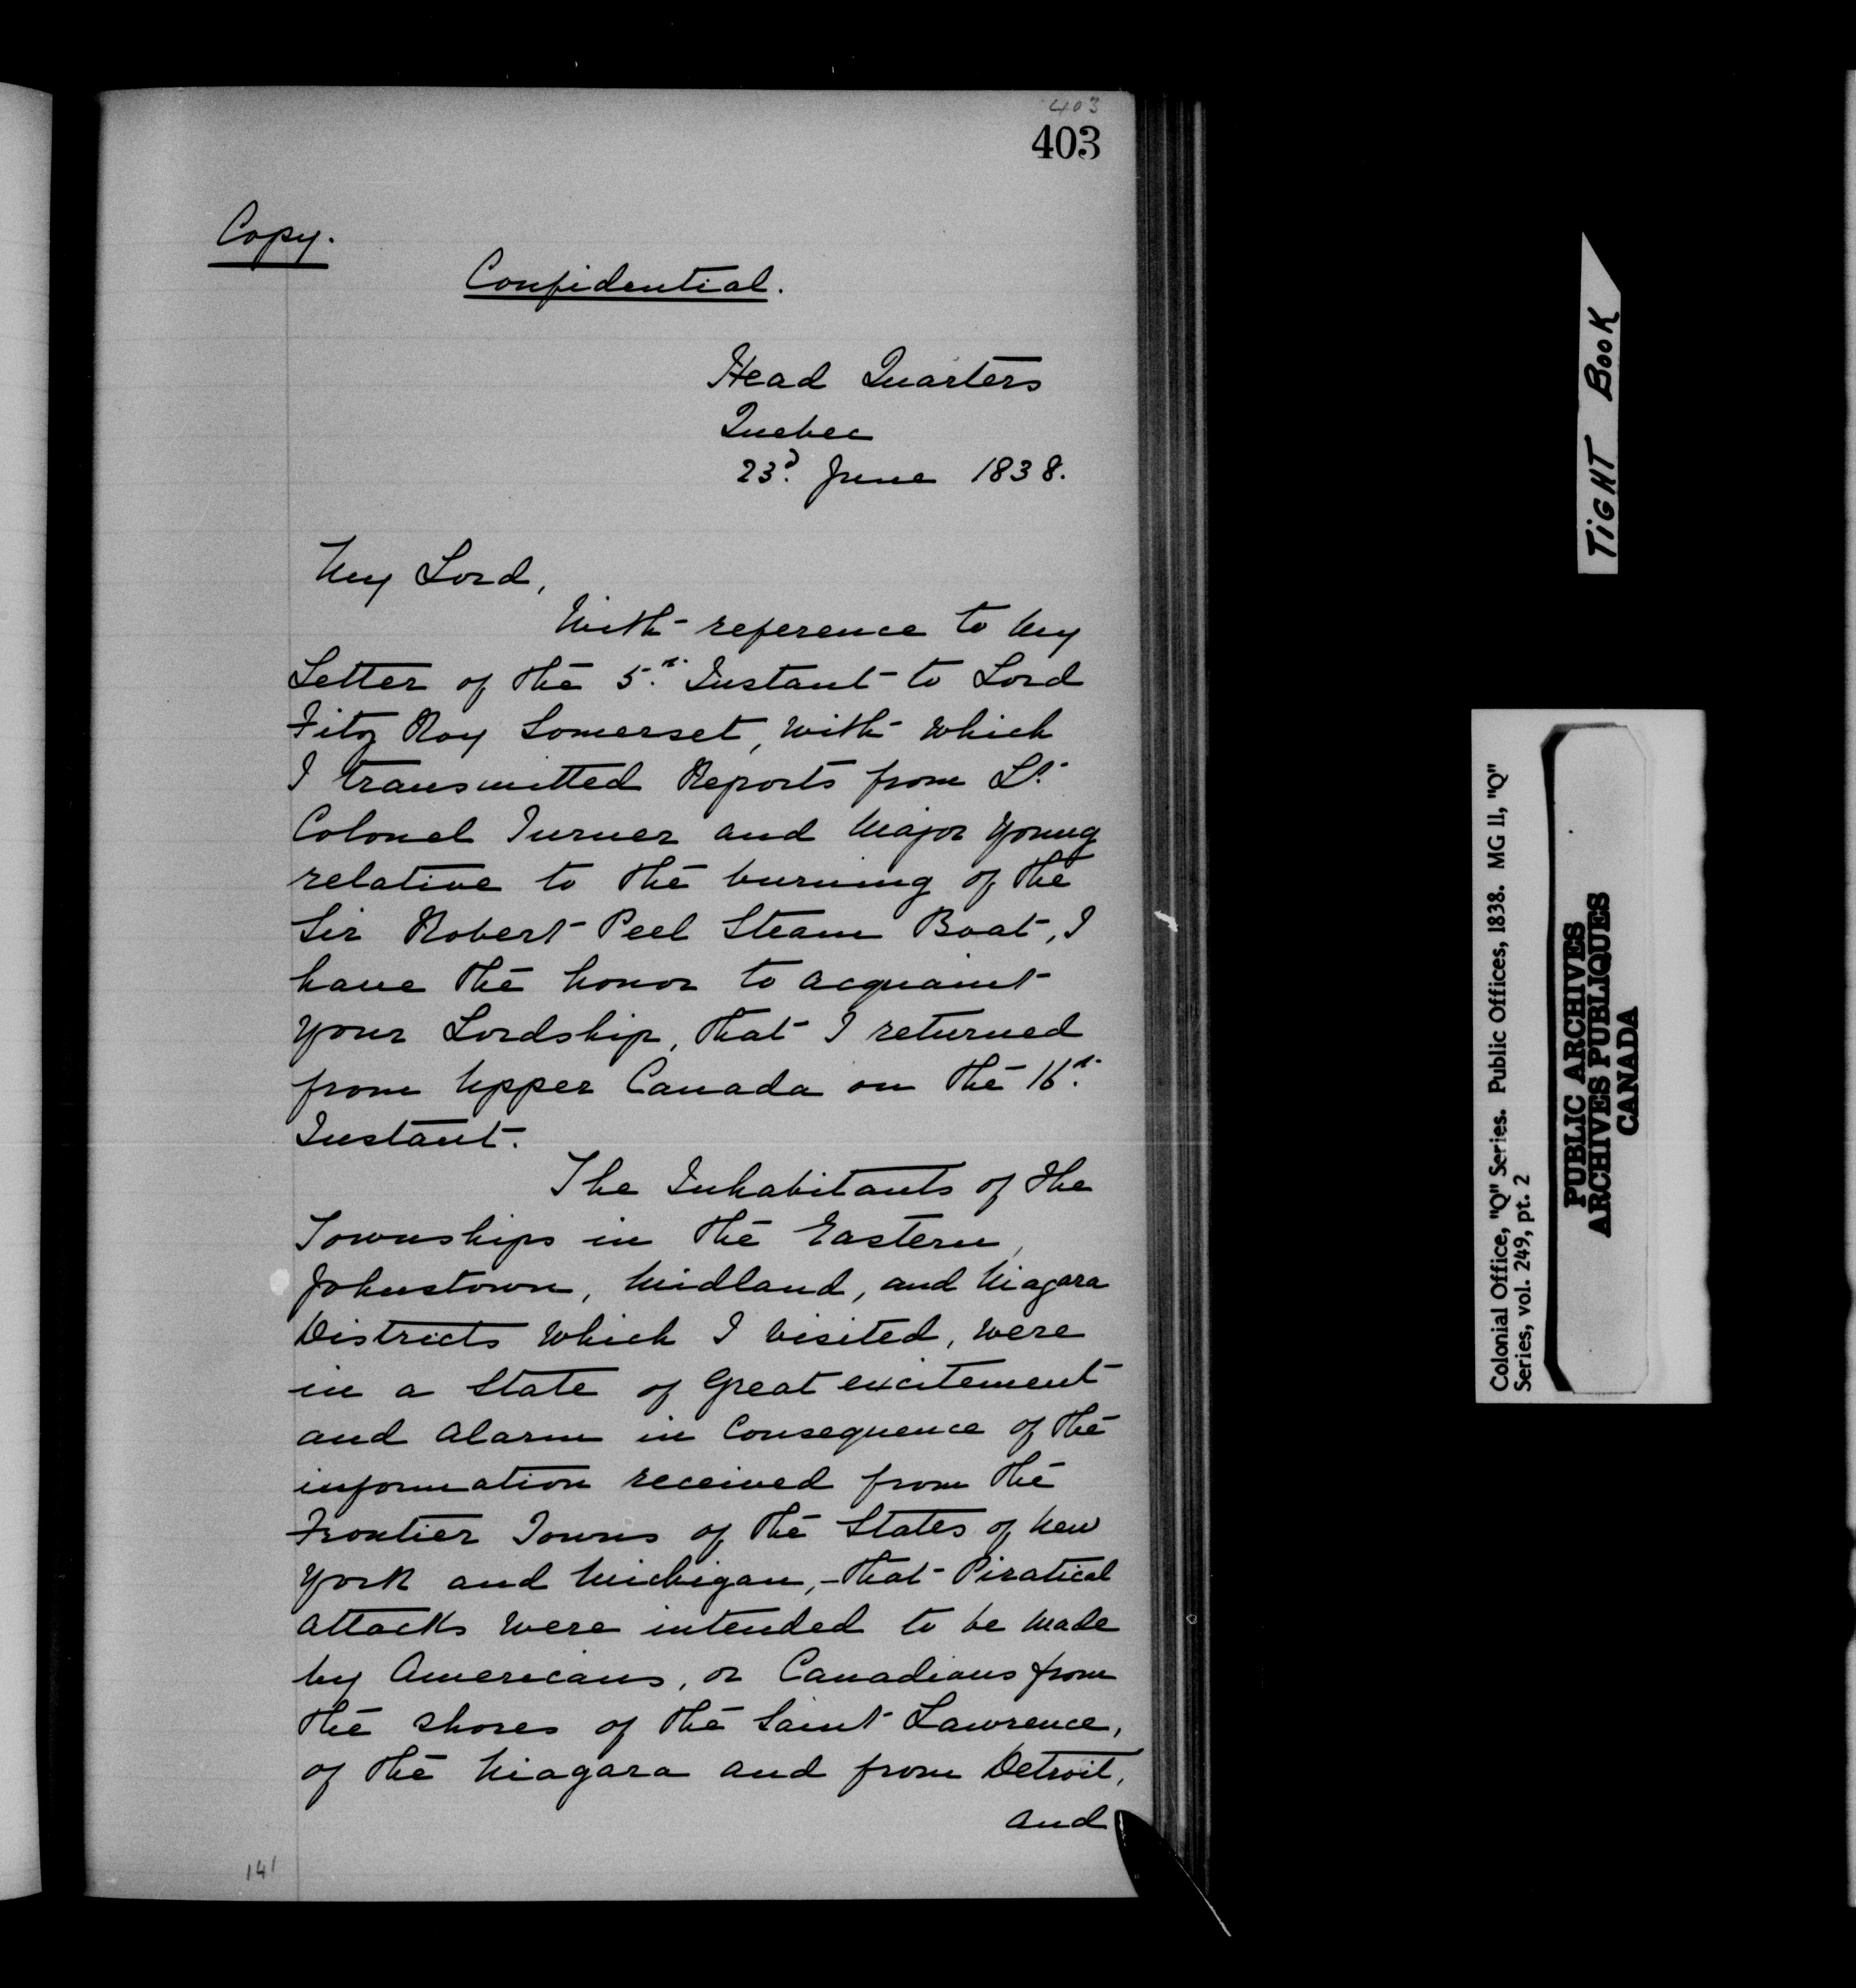 403
403
Copy.
Confidential.
Head Quarters
Quebec
23d. June 1838.
My Lord,
With reference to my
Letter of the 5th. Instant to Lord
Fitz Roy Somerset, with which
I transmitted Reports from Lt.
Colonel Turner and Major Young
relative to the burning of the
Sir Robert Peel Steam Boat, I
have the honor to acquaint
your Lordship, that I returned
from Upper Canada on the 16th.
Instant.
The Inhabitants of the
Townships in the Eastern,
Johnstown, Midland, and Niagara
Districts which I visited, were
in a State of Great excitement
and alarm in Consequence of the
information received from the
Frontier Towns of the States of New
York and Michigan, - that Piratical
attacks were intended to be made
by Americans, or Canadians from
the shores of the Saint Lawrence,
of the Niagara and from Detroit,
and
141
TIGHT BOOK
Colonial Office, "Q" Series. Public Offices, 1838. MG 11, "Q"
Series, vol. 249, pt. 2
PUBLIC ARCHIVES
ARCHIVES PUBLIQUES
CANADA